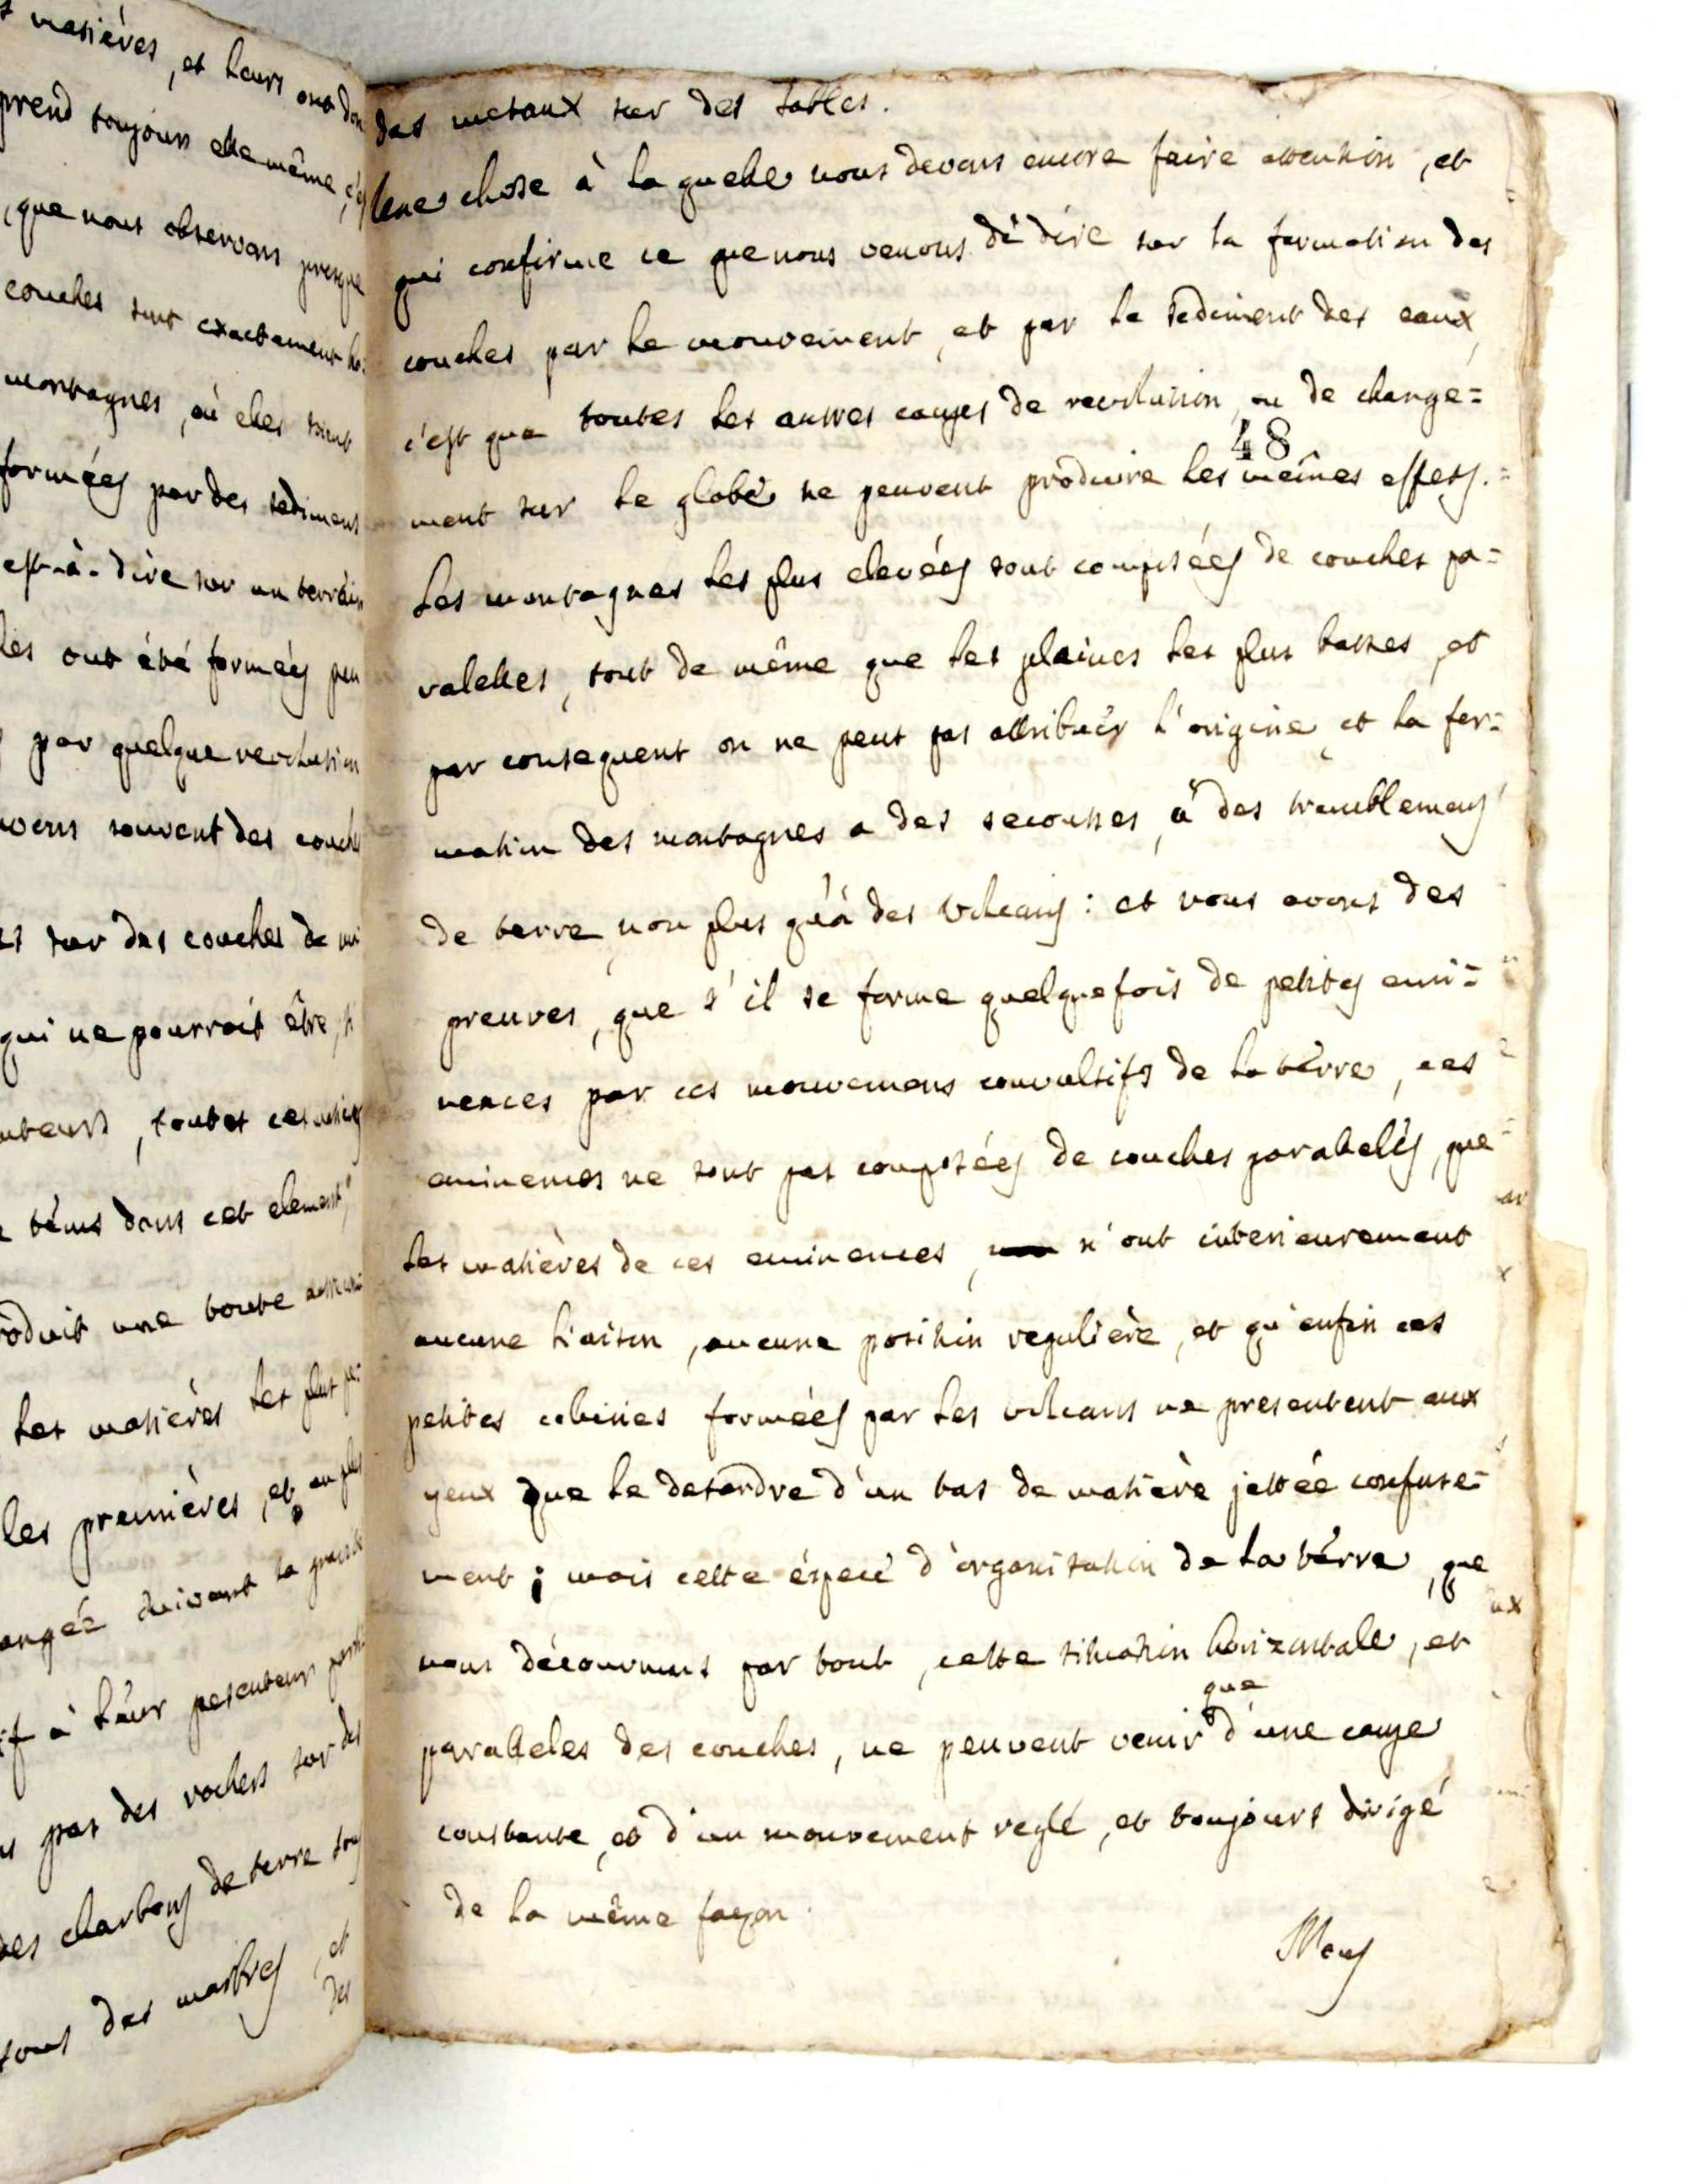 s matières, et leurs ont don
prend toujours elle même, c'es
, que nous observons presque
couches sont exactement ho=
montagnes, où elles sont
formées par des sediments
est-à-dire sur un terrain
les ont été formées peu
par quelque revolution
uvons souvent des couches
es sur des couches de
qui ne pourroit être,
nteurs, toutes ces
tems dans cet element,
roduit une toute
les matières les plus pe=
les premières, et en plus
angée suivant la
if à leur pesenteur
s pas des rochers sur des
des charbons de terre sous
sous des marbres, et
des
des metaux sur des sables.
Une chose à la quelle nous devons encore faire attention, et
qui confirme ce que nous venons de dire sur la formation des
couches par le mouvement, et par le sediment des eaux,
c'est que toutes les autres causes de revolution, ou de change=
48
ment sur le globe ne peuvent produire les mêmes effets.=
Les montagnes les plus elevées sont composées de couches pa=
ralelles, tout de même que les plaines les plus basses, et
par consequent on ne peut pas attribuer l'origine, et la for=
mation des montagnes a des secousses, à des tremblemens
de terre, non plus qu'à des Volcans: et nous avons des
preuves, que s'il se forme quelquefois de petites emi=
nences par ces mouvemens convulsifs de la terre, ces
eminences ne sont pas composées de couches paralleles, que
les matières de ces eminences, n'ont interieurement
aucune liaison, aucune position regulière, et qu'enfin ces
petites colines formées par les volcans ne presentent aux
yeux que le desordre d'un tas de matière jettée confuse=
ment; mais cette éspece d'organisation de la terre, que
nous découvrons par tout, cette situation horizontale, et
que
paralleles des couches, ne peuvent venir d'une cause
constante, et d'un mouvement reglé, et toujours dirigé
de la même façon.
Nous